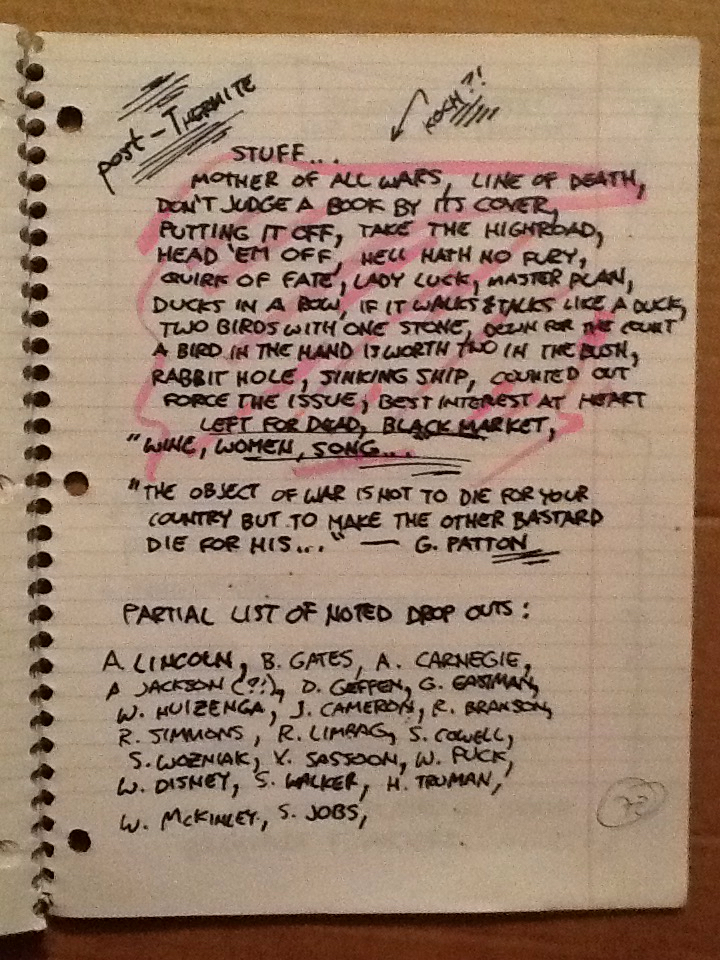 post-THERMITE
KOCH?!
STUFF...
MOTHER OF ALL WARS, LINE OF DEATH,
DON'T JUDGE A BOOK BY ITS COVER,
PUTTING IT OFF, TAKE THE HIGHROAD,
HEAD 'EM OFF, HELL HATH NO FURY,
QUIRK OF FATE, LADY LUCK, MASTER PLAN,
DUCKS IN A ROW, IF IT WALKS & TALKS LIKE A DUCK,
TWO BIRDS WITH ONE STONE, DOWN FOR THE COUNT
A BIRD IN THE HAND IS WORTH TWO IN THE BUSH,
RABBIT HOLE, SINKING SHIP, COUNTED OUT
FORCE THE ISSUE, BEST INTEREST AT HEART
LEFT FOR DEAD, BLACK MARKET,
"WINE, WOMEN, SONG...
"THE OBJECT OF WAR IS NOT TO DIE FOR YOUR
COUNTRY BUT TO MAKE THE OTHER BASTARD
DIE FOR HIS..." — G. PATTON
PARTIAL LIST OF NOTED DROP OUTS:
A. LINCOLN, B. GATES, A. CARNEGIE,
A JACKSON (?!), D. GEFFEN, G. EASTMAN,
W. HUIZENGA, J. CAMERON, R. BRANSON,
R. SIMMONS, R. LIMBAG, S. COWELL,
S. WOZNIAK, V. SASSOON, W. PUCK,
W. DISNEY, S. WALKER, H. TRUMAN,
W. McKINLEY, S. JOBS,